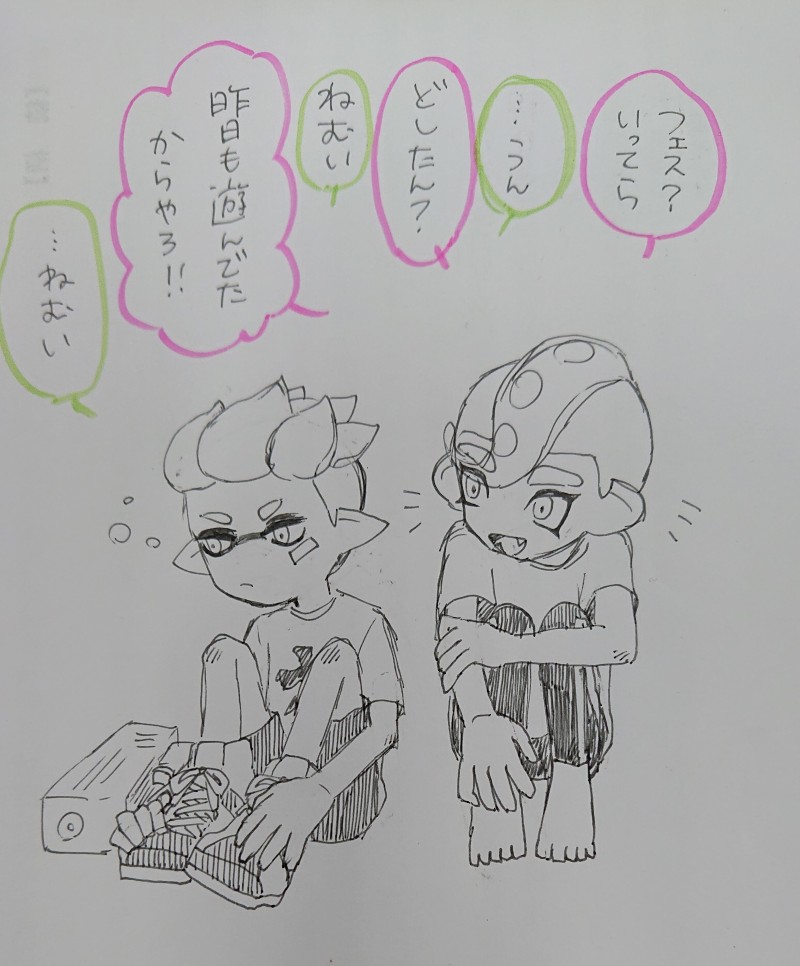 フェス?
いってら
…うん
どしたん?
ねむい
昨日も遊んでた
からやろ!!
…ねむい